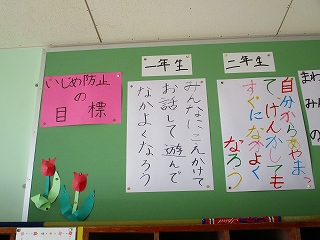 いじめ防止
の
目標
一年生
みんなにこえかけて
お話して遊んで
なかよくなろう
二年生
自分からあやまっ
て、けんかしても
すぐになかよく
なろう
まわ
みん
の